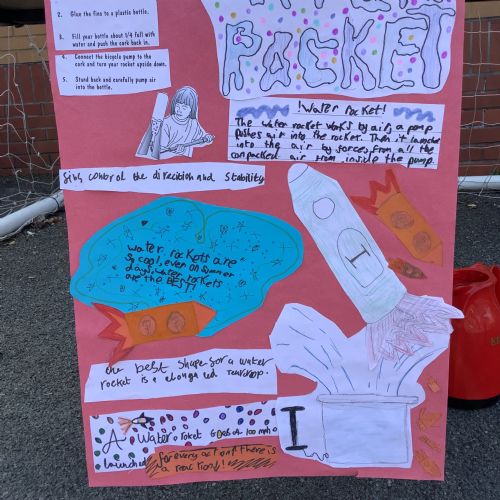 2. Glue the fins to a plastic bottle.
3. Fill your bottle about 1/4 full with
water and push the cork back in.
4. Connect the bicycle pump to the
cork and turn your rocket upside down.
5. Stand back and carefully pump air
into the bottle.
ROCKET
!Water rocket!
The water rocket works by air, a pump
Pushes air into the rocket. Then it launches
into the air by forces from all the
compacked air from inside the pump.
fins control the direction and stability
water rockets are
so cool, even on summer
days, water rockets
are the BEST!
the best shape for a water
rocket is a elongated teardrop.
A Water rocket Goes at 100 mph
launched
for every action there is
a reaction!
I
I